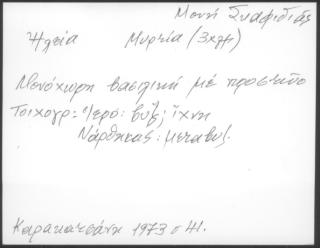 Μονή Σκαφιδιάς
Ηλεία Μυρτιά (3χλμ)
Μονόχωρη βασιλική μέ προστώο
Τοιχογρ: Ιερό: βυζ; ίχνη
Νάρθηκας: μεταβυζ.
Καρακατσάνη 1973 σ 41.